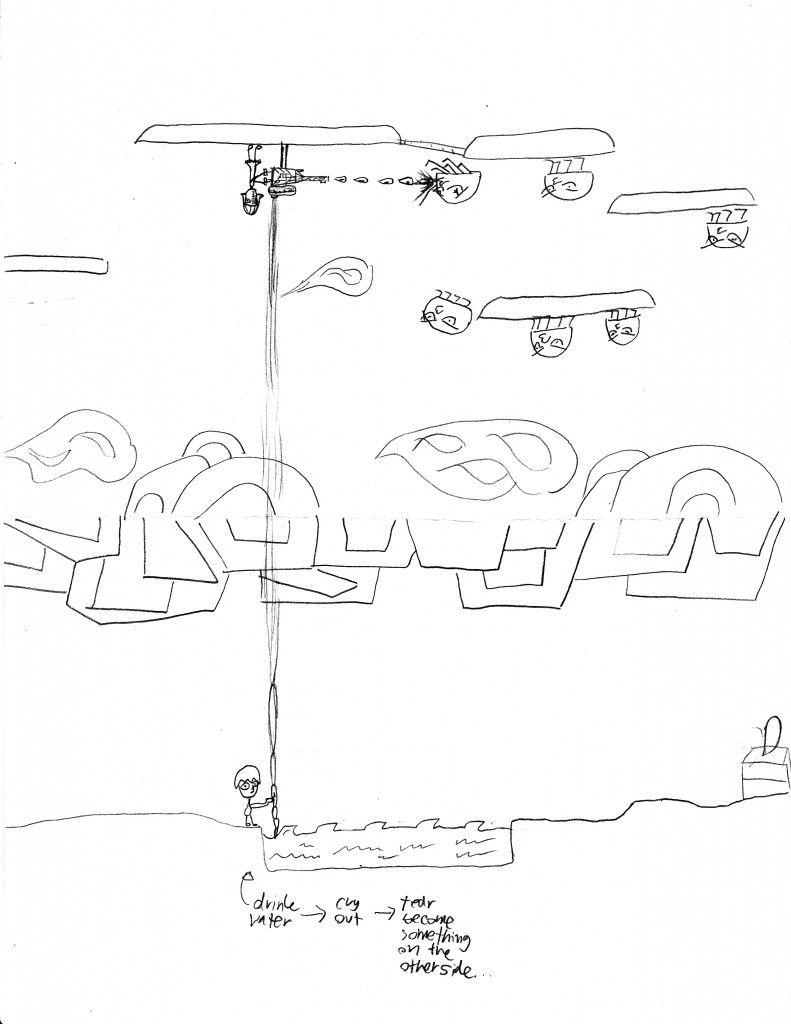 drink
water → cry
out → tear
become
something
on the
otherside...